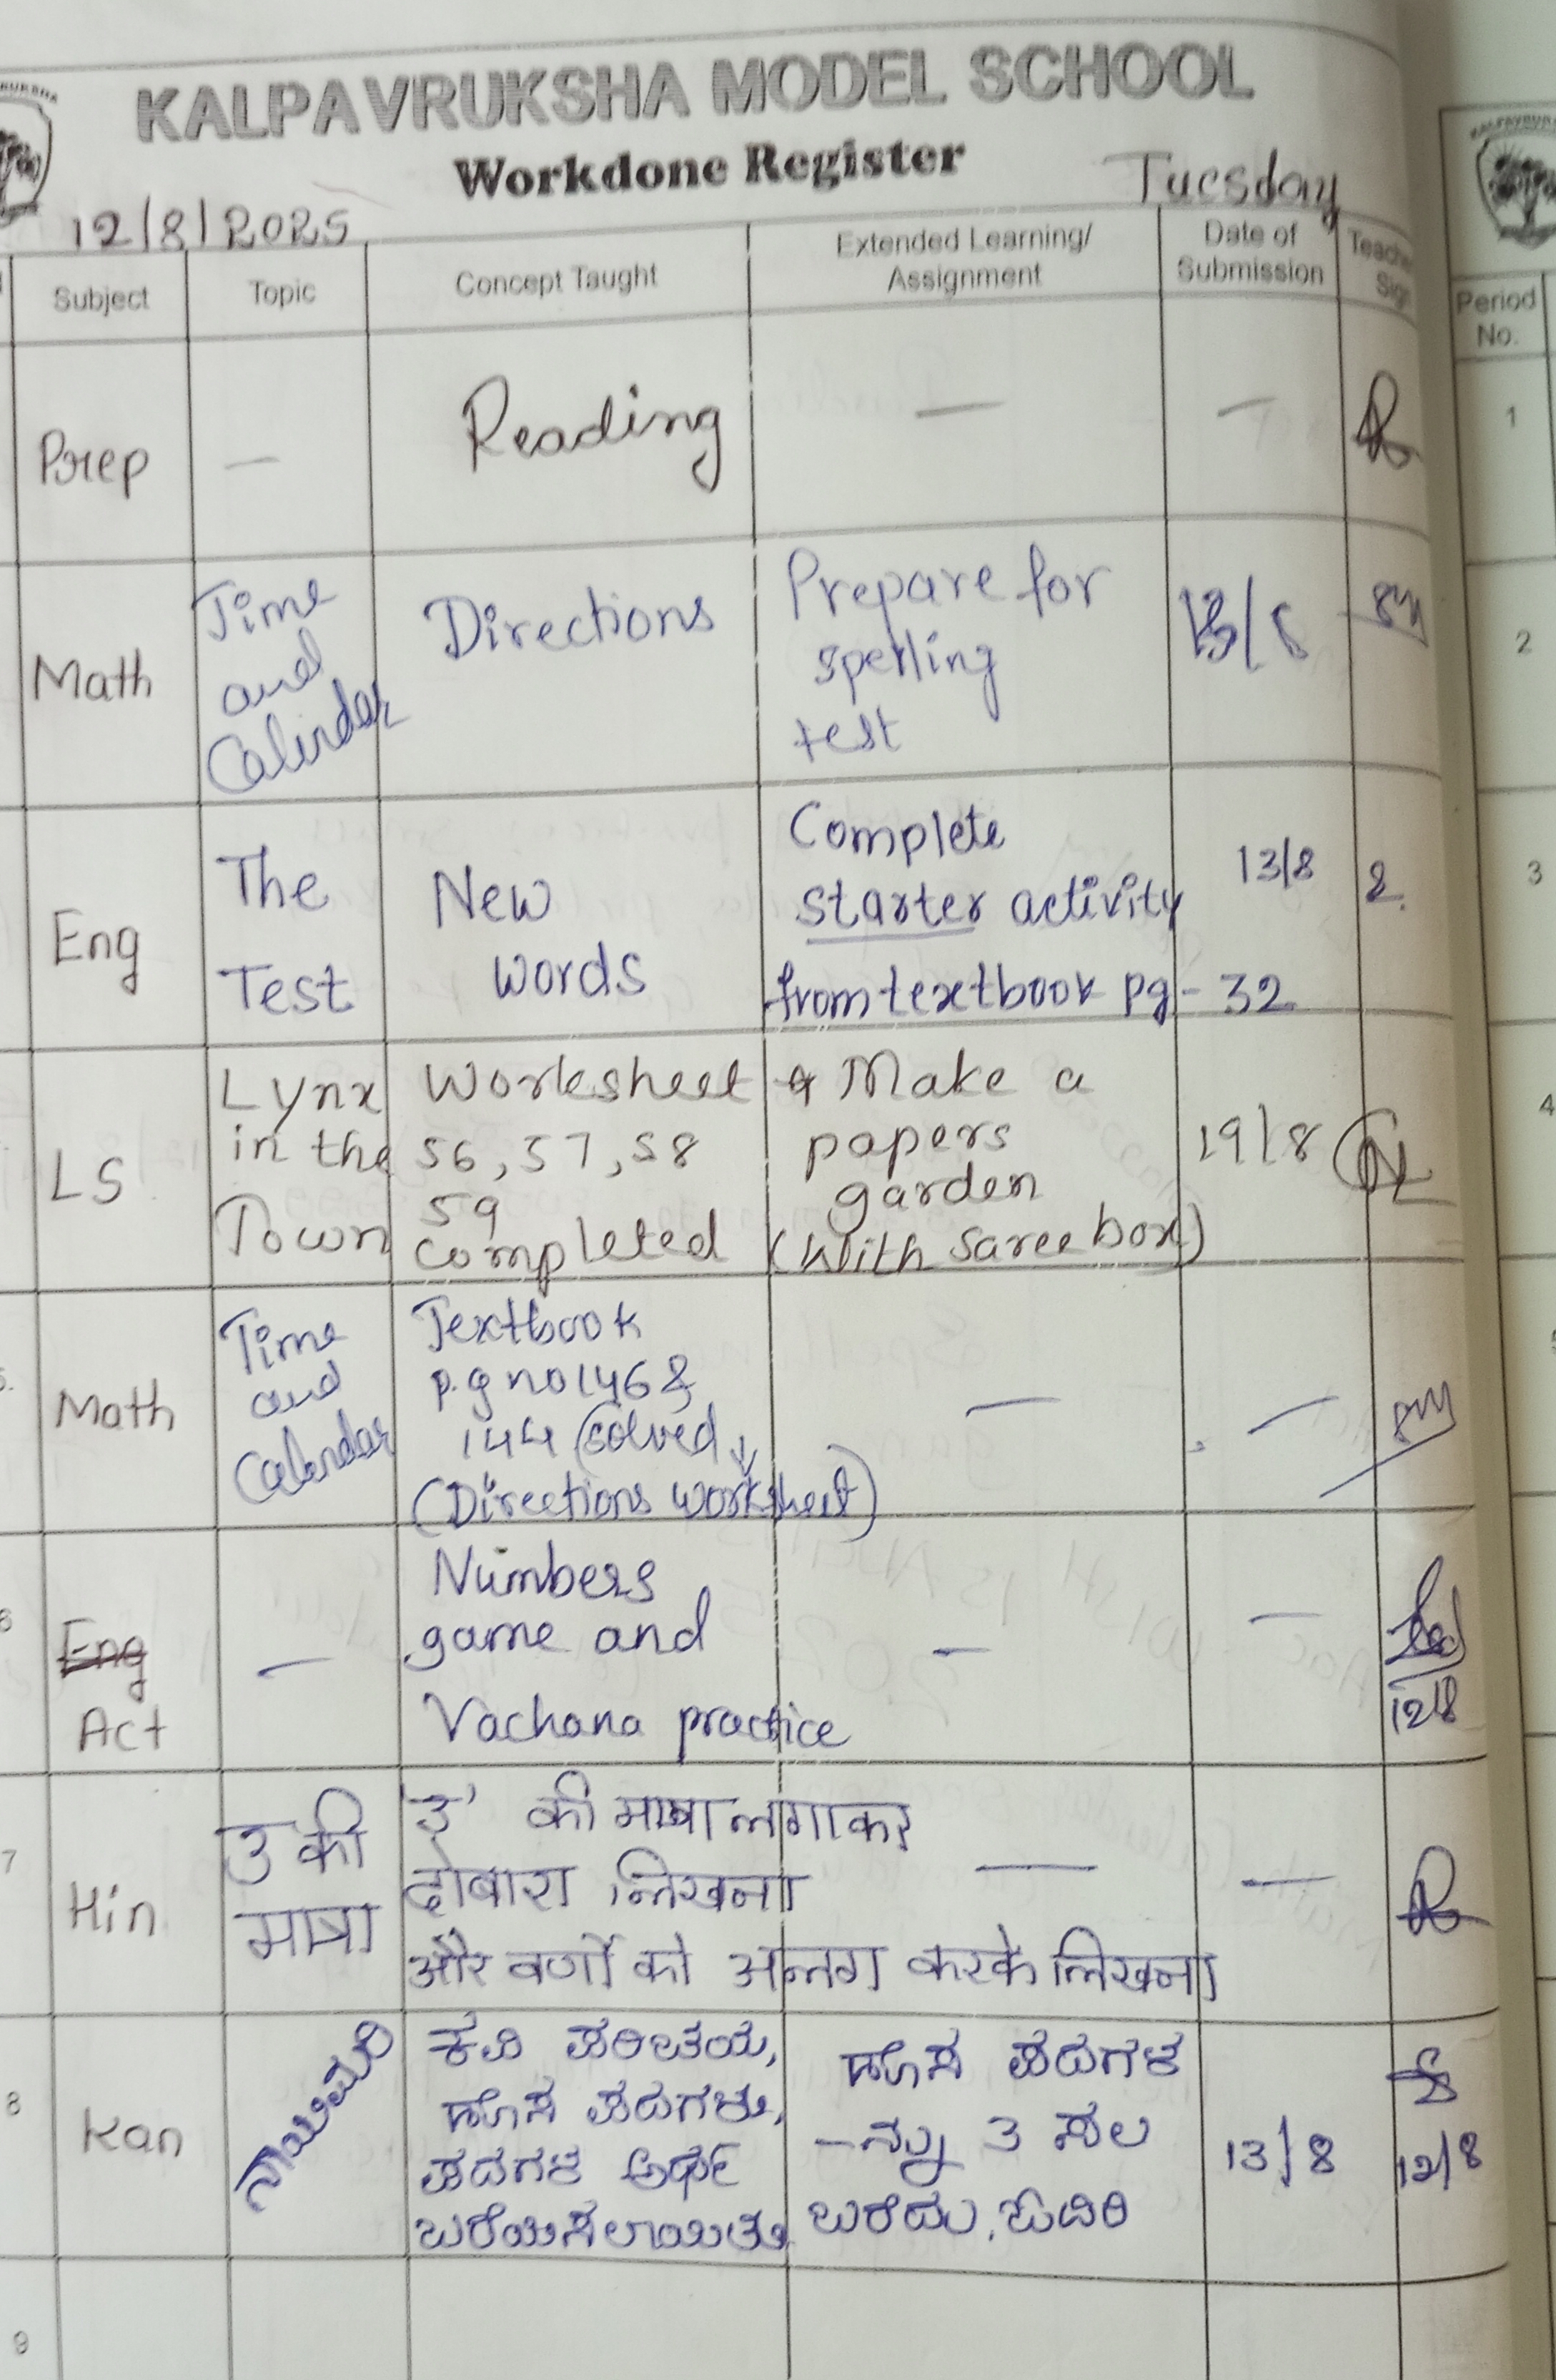 KALPAVRUKSHA MODEL SCHOOL
Workdone Register
12/8/2025
Tuesday
Subject
Topic
Concept Taught
Extended Learning/
Assignment
Date of
Submission
Prep
—
Reading
—
—
Math
Time
and
Calendar
Directions
Prepare for
spelling
test
Eng
The
Test
New
words
Complete
starter activity
from textbook pg - 32
13/8
LS
Lynx
in the
Town
Worksheet
56, 57, 58
59
completed
Make a
papers
garden
(With Saree box)
19/8
Math
Time
and
Calendar
Textbook
p.g no 146 &
144 solved
(Directions worksheet)
—
—
6
Eng
Act
—
Numbers
game and
Vachana practice
—
—
12/8
7
Hin
उ की
मात्रा
'उ' की मात्रा लगाकर
दोबारा लिखना
और वर्णों को अलग करके लिखना
—
—
8
Kan
ನಾಯಿಮರಿ
ಕವಿ ಪರಿಚಯ,
ಹೊಸ ಪದಗಳು,
ಪದಗಳ ಅರ್ಥ
ಬರೆಯಿಸಲಾಯಿತು
ಹೊಸ ಪದಗಳ
-ನ್ನು 3 ಸಲ
ಬರೆದು, ಓದಿರಿ
13/8
12/8
9
Period
No.
1
2
3
4